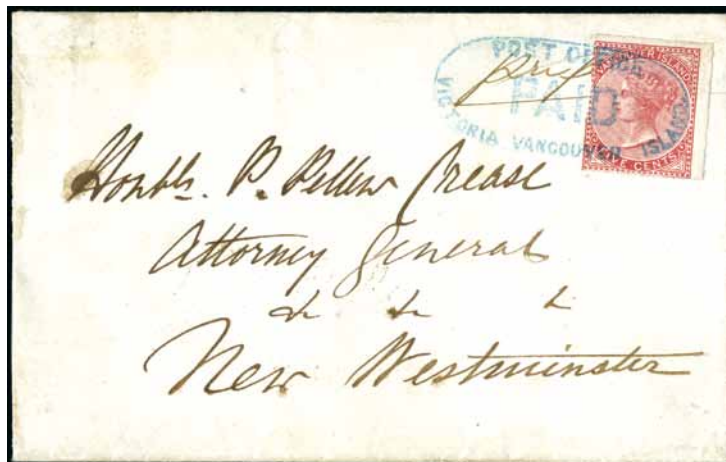 POST OFFICE
PAID
VICTORIA VANCOUVER ISLAND
VANCOUVER ISLAND
FIVE CENTS
Honble. P. Pellew Crease
Attorney General
& & &
New Westminster